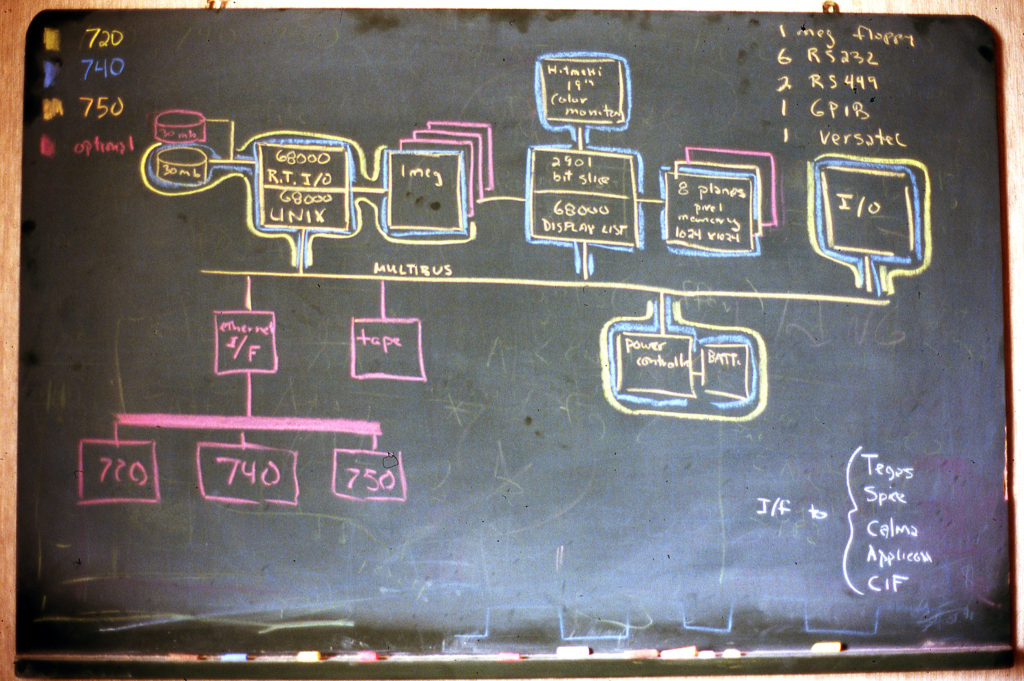 720
740
750
optional
1 meg floppy
6 RS232
2 RS449
1 GPIB
1 Versatec
30 mb
30 mb
68000
R.T. I/O
68000
UNIX
1 meg
Hitachi
19"
Color
monitor
2901
bit slice
68000
DISPLAY LIST
8 planes
pixel
memory
1024 x 1024
I/O
MULTIBUS
ethernet
I/F
tape
power
controller
BATT.
720
740
750
I/f to
Tegas
Spice
Calma
Applicon
CIF